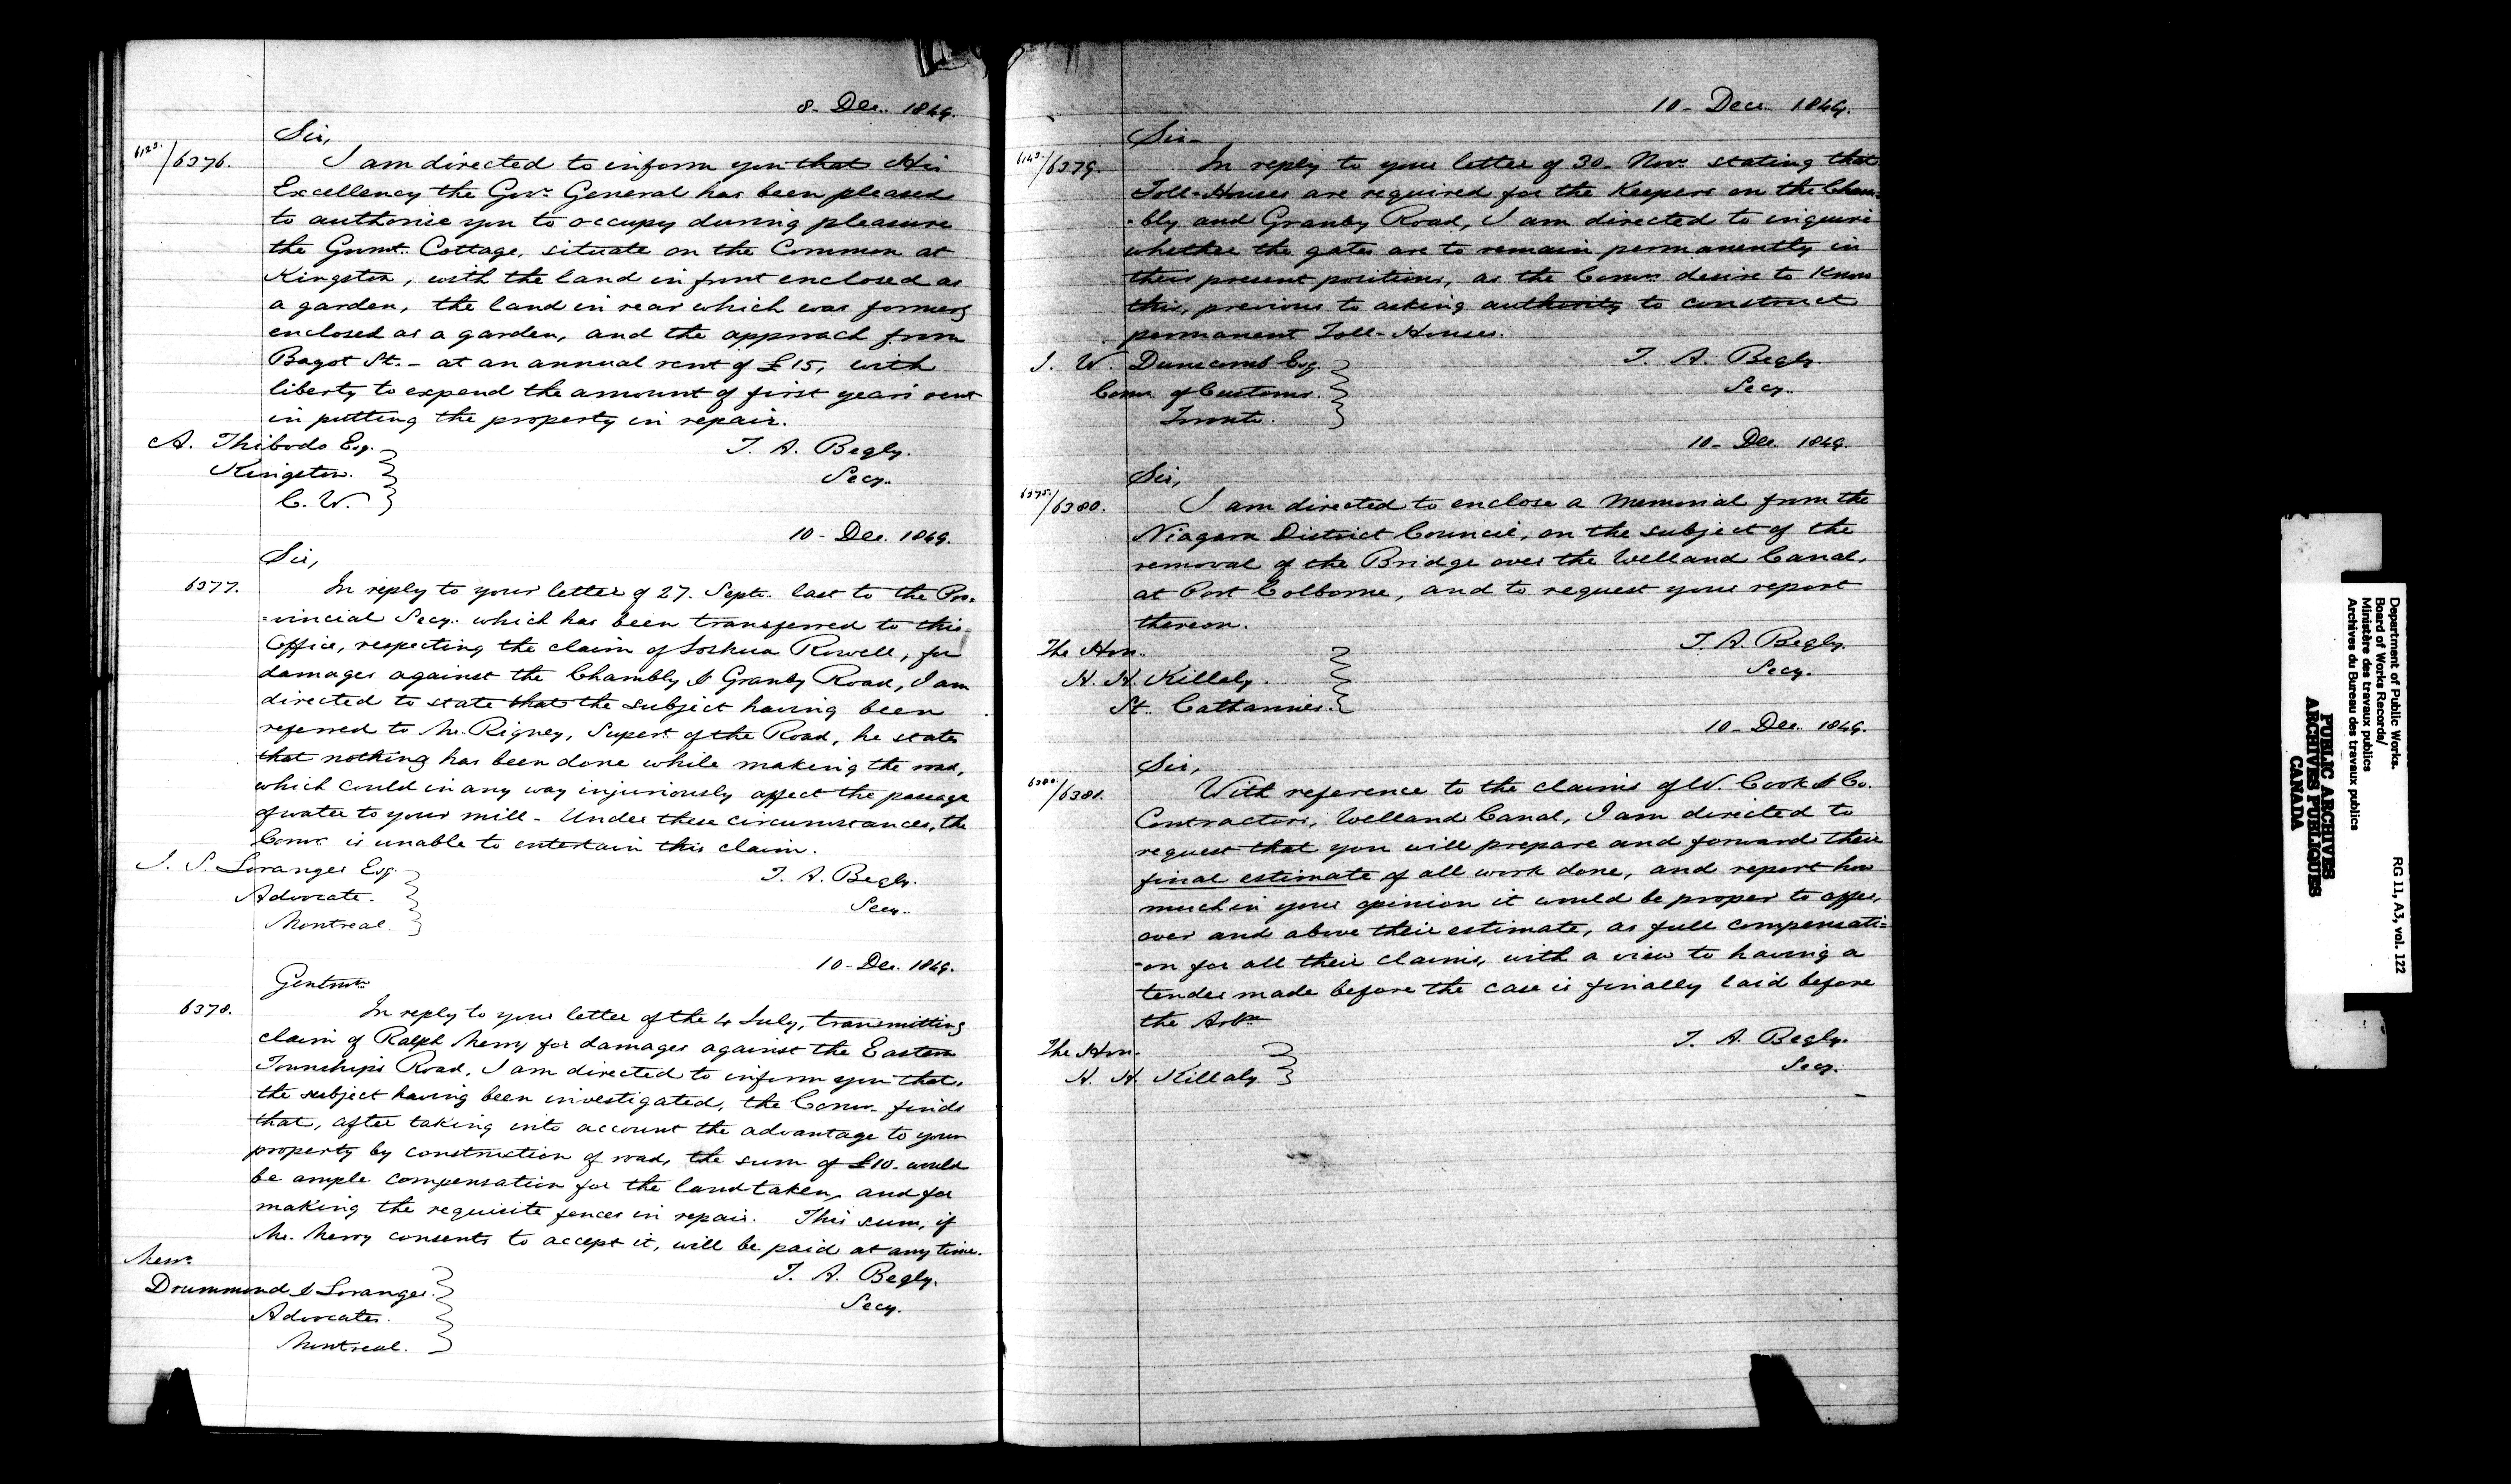 8- Dec. 1849.
Sir,
6123./6376. I am directed to inform you that His
Excellency the Govr. General has been pleased
to authorise you to occupy during pleasure
the Gvmt. Cottage, situate on the Common at
Kingston, with the land in front enclosed as
a garden, the land in rear which was formerly
enclosed as a garden, and the approach from
Bagot St. - at an annual rent of £15, with
liberty to expend the amount of first year's rent
in putting the property in repair.
A. Thibodo Esq.
Kingston.
C. W.
T. A. Begly.
Secy.
10- Dec. 1849.
Sir,
6377. In reply to your letter of 27. Septr. last to the Pro-
-vincial Secy. which has been transferred to this
Office, respecting the claim of Joshua Rowell, for
damages against the Chambly & Granby Road, I am
directed to state that the subject having been
referred to Mr. Rigney, Supert. of the Road, he states
that nothing has been done while making the road,
which could in any way injuriously affect the passage
of water to your mill - Under these circumstances, the
Comr. is unable to entertain this claim.
J. S. Loranger Esq.
Advocate.
Montreal.
T. A. Begly.
Secy.
10- Dec. 1849.
Gentmn.
6378. In reply to your letter of the 4 July, transmitting
claim of Ralph Merry for damages against the Eastern
Townships Road, I am directed to inform you that,
the subject having been investigated, the Comr. finds
that, after taking into account the advantage to your
property by construction of road, the sum of £10- would
be ample compensation for the land taken, and for
making the requisite fences in repair. This sum, if
Mr. Merry consents to accept it, will be paid at any time.
Messrs.
Drummond & Loranger.
Advocates.
Montreal.
T. A. Begly.
Secy.
10- Decr. 1849.
Sir-
6143./6379. In reply to your letter of 30- Novr. stating that
Toll-Houses are required for the Keepers on the Cham-
-bly and Granby Road, I am directed to inquire
whether the gates are to remain permanently in
their present positions, as the Comrs. desire to know
this, previous to asking authority to construct
permanent Toll-Houses.
J. W. Dunscomb Esq.
Comr. of Customs.
Toronto.
T. A. Begly.
Secy.
10- Dec. 1849.
Sir,
6375./6380. I am directed to enclose a Memorial from the
Niagara District Council, on the subject of the
removal of the Bridge over the Welland Canal,
at Port Colborne, and to request your report
thereon.
The Hon.
H. H. Killaly.
St. Catharines.
T. A. Begly.
Secy.
10- Dec. 1849.
Sir,
/6381. With reference to the claims of W. Cook & Co.
Contractors, Welland Canal, I am directed to
request that you will prepare and forward their
final estimate of all work done, and report how
much in your opinion it would be proper to offer,
over and above their estimate, as full compensati-
-on for all their claims, with a view to having a
tender made before the case is finally laid before
the Arbn.
The Hon.
H. H. Killaly.
T. A. Begly.
Secy.
Department of Public Works.
Board of Works Records/
Ministère des travaux publics
Archives du Bureau des travaux publics
RG 11, A3, vol. 122
PUBLIC ARCHIVES
ARCHIVES PUBLIQUES
CANADA